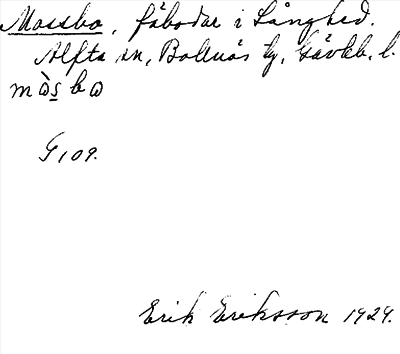 Mossbo, fäbodar i Långhed.
Alfta sn, Bollnäs tg, Gävleb. l.
mɷ̀s bɷ
G109.
Erik Eriksson 1929.